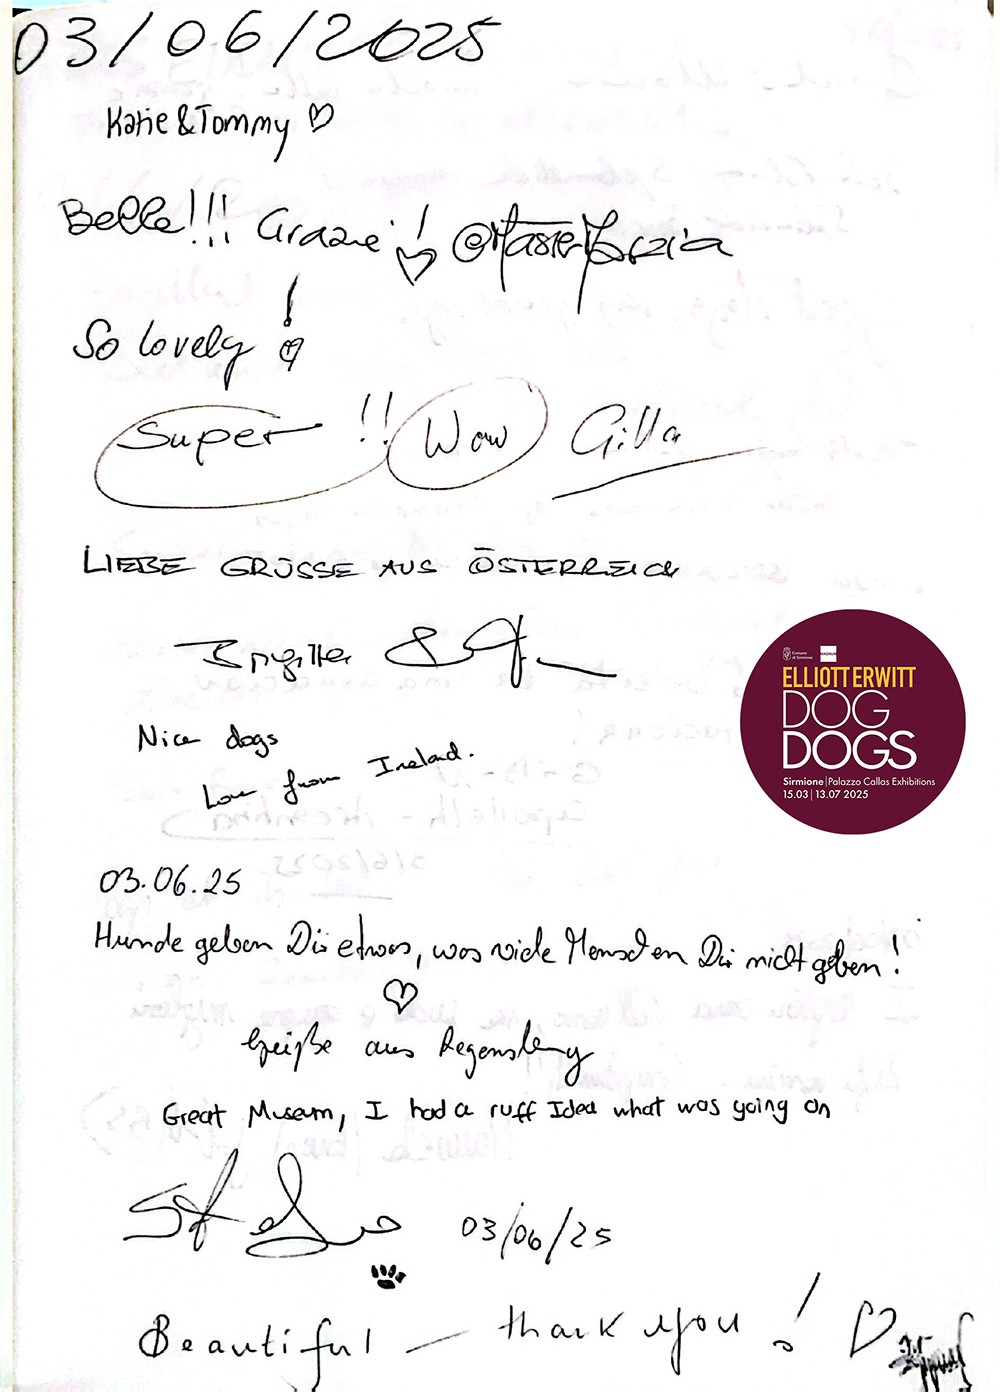 03/06/2025
Katie & Tommy ♡
Belle!!! Grazie! ♡ @MasterMarzia
So lovely!
Super!! Wow Gilla
LIEBE GRÜSSE AUS ÖSTERREICH
Brigitte &
Nice dogs
Love from Ireland.
Comune di Sirmione
MAGNUM
ELLIOTT ERWITT
DOG
DOGS
Sirmione | Palazzo Callas Exhibitions
15.03 | 13.07 2025
03.06.25
Hunde geben Dir etwas, was viele Menschen Dir nicht geben!
♡
Grüße aus Regensburg
Great Museum, I had a ruff Idea what was going on
03/06/25
Beautiful — thank you! ♡